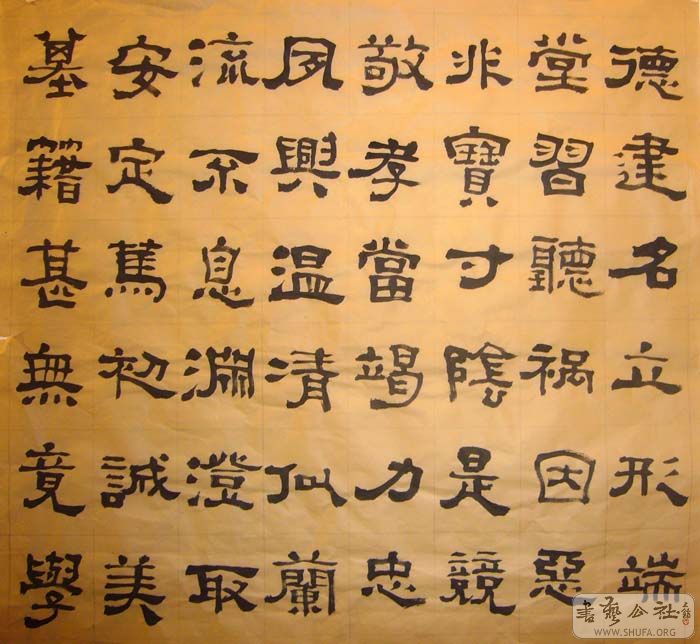 德建名立形端
堂習聽祸因惡
非寶寸陰是競
敬孝當竭力忠
夙興温清似蘭
流不息淵澄取
安定篤初誠美
基籍甚無竟學
書藝公社
WWW.SHUFA.ORG